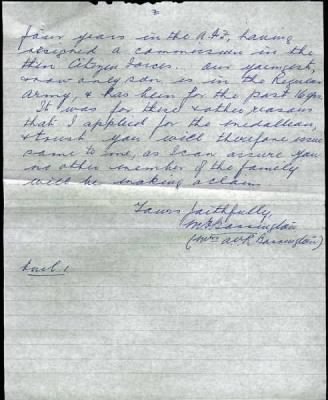 2
four years in the A.I.F, having
resigned a commission in the
then Citizen Forces. Our youngest,
& now only son is in the Regular
Army, & has been for the past 16 yrs.
It was for these & other reasons
that I applied for the medallion,
& trust you will therefore issue
same to me, as I can assure you
no other member of the family
will be making a claim.
Yours faithfully,
Bassington
(Mrs A.V.R. Bassington)
Encl 1